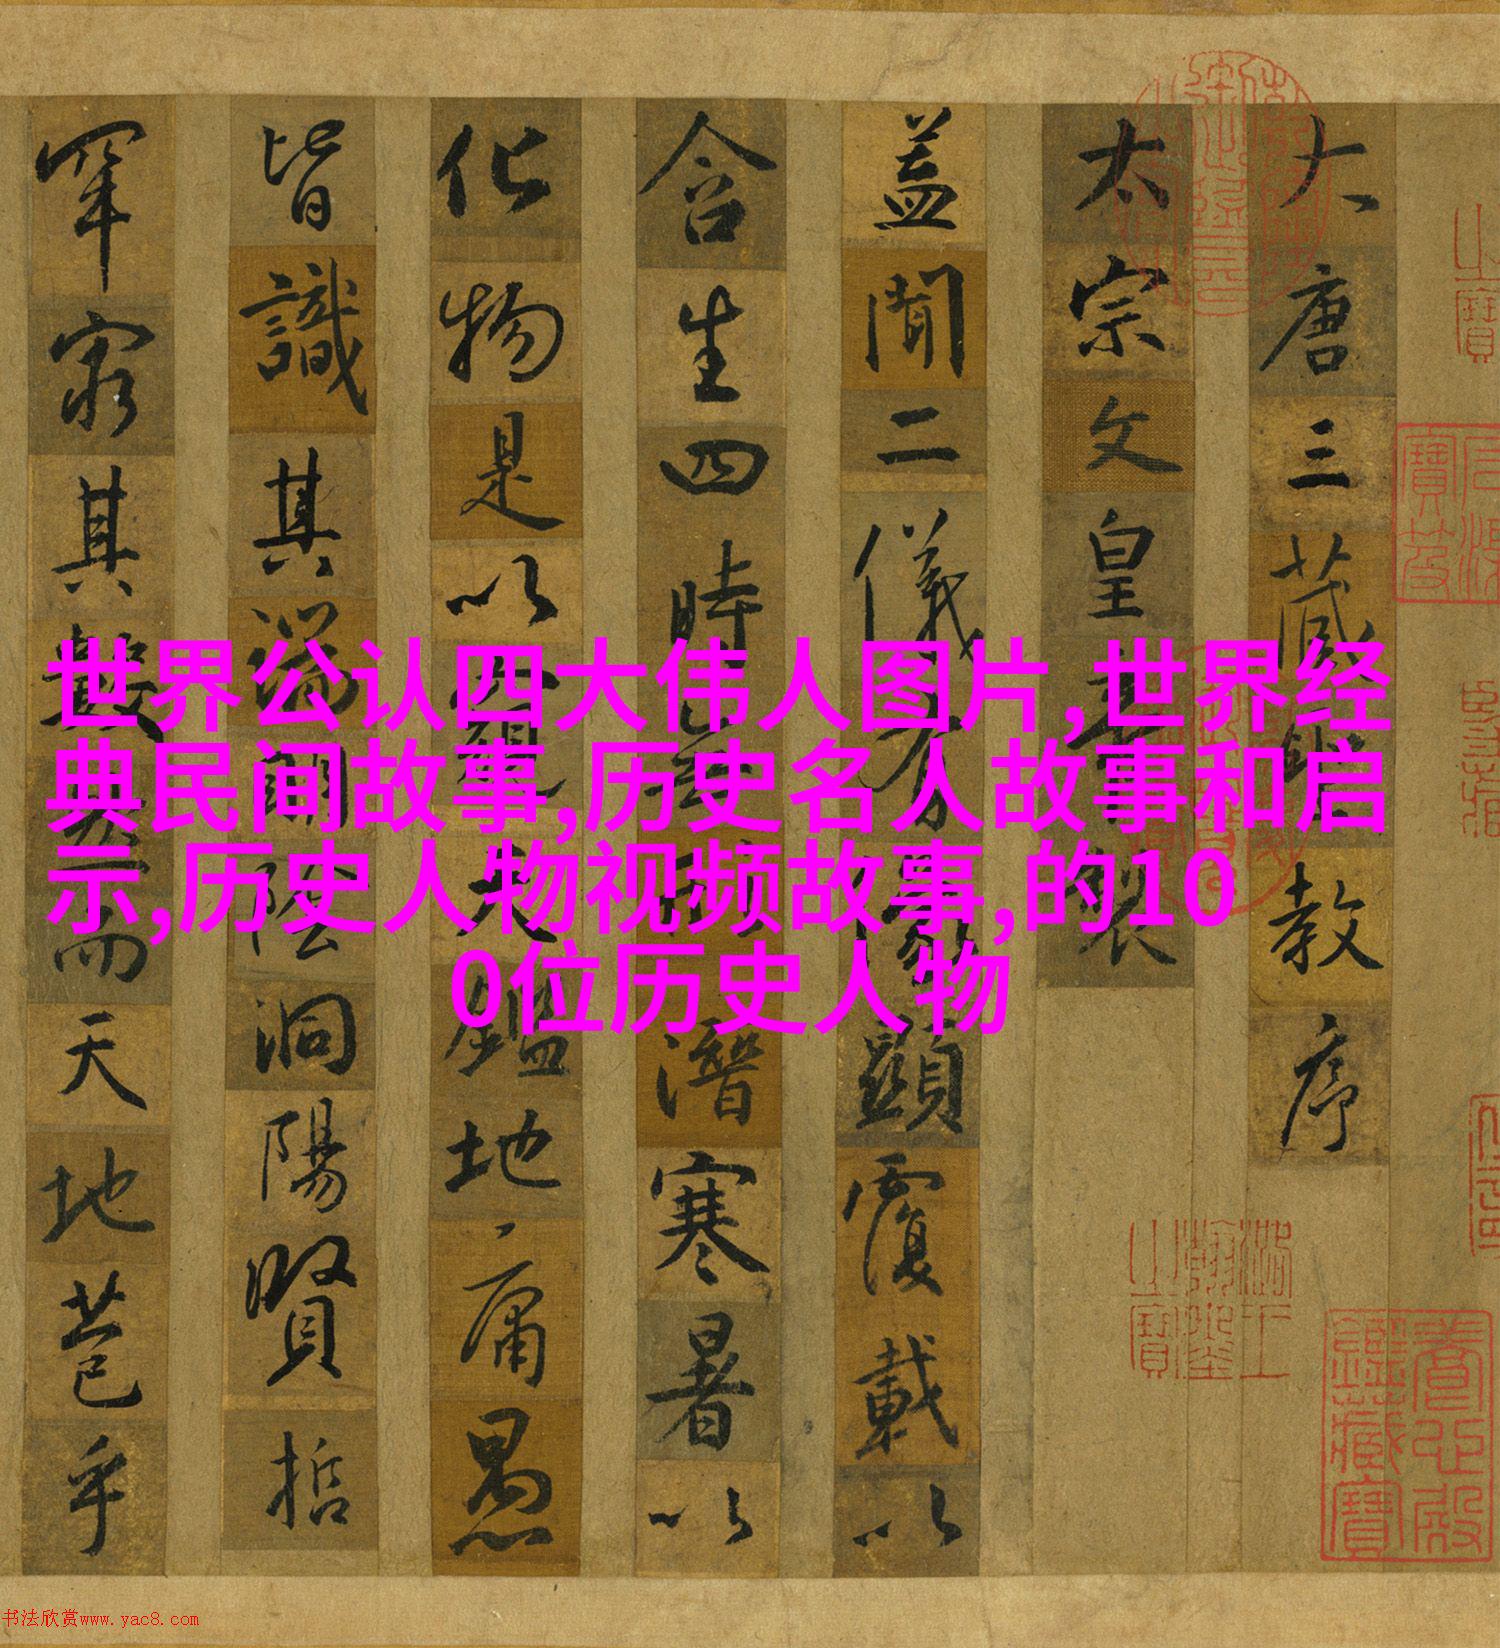 大唐三藏聖教序
太宗文皇帝製
盖聞二儀有象顯覆載以
含生四時無形潛寒暑以
化物是以窺天鑑地庸愚
皆識其端明陰洞陽賢哲
罕窮其數然而天地苞乎
世界公认四大伟人图片,世界经
典民间故事,历史名人故事和启
示,历史人物视频故事,的10
0位历史人物
養心殿
鑑藏寶
书法欣赏www.yac8.com